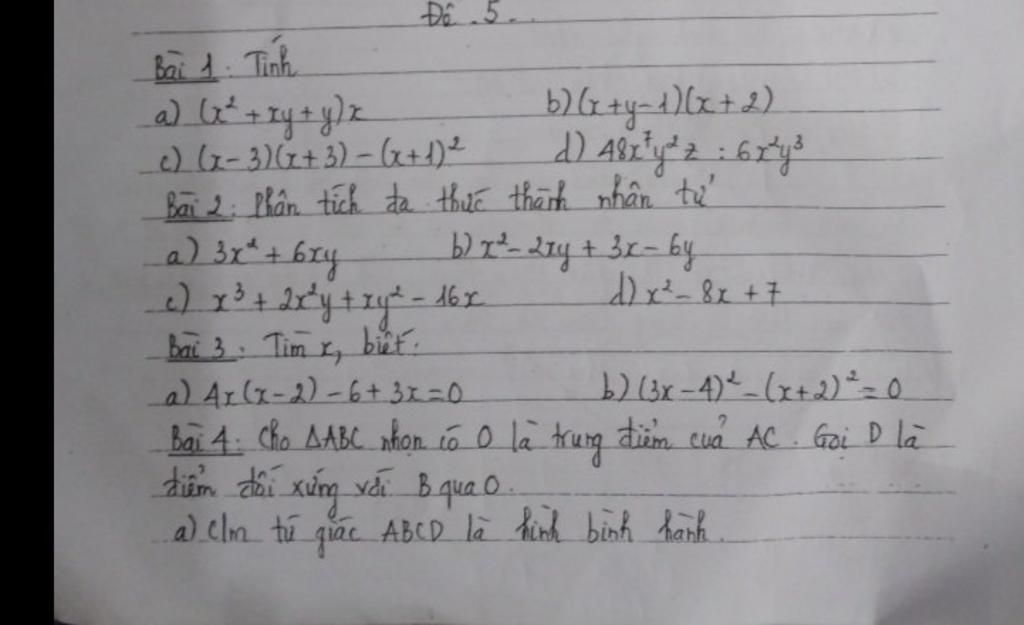 Đề 5.
Bài 1: Tính
a) (x² + xy + y)x b) (x + y - 1)(x + 2)
c) (x - 3)(x + 3) - (x + 1)² d) 48x⁷y²z : 6x²y³
Bài 2: Phân tích đa thức thành nhân tử
a) 3x² + 6xy b) x² - 2xy + 3x - 6y
c) x³ + 2x²y + xy² - 16x d) x² - 8x + 7
Bài 3: Tìm x, biết:
a) 4x(x - 2) - 6 + 3x = 0 b) (3x - 4)² - (x + 2)² = 0
Bài 4: Cho ΔABC nhọn có O là trung điểm của AC. Gọi D là
điểm đối xứng với B qua O.
a) C/m tứ giác ABCD là hình bình hành.